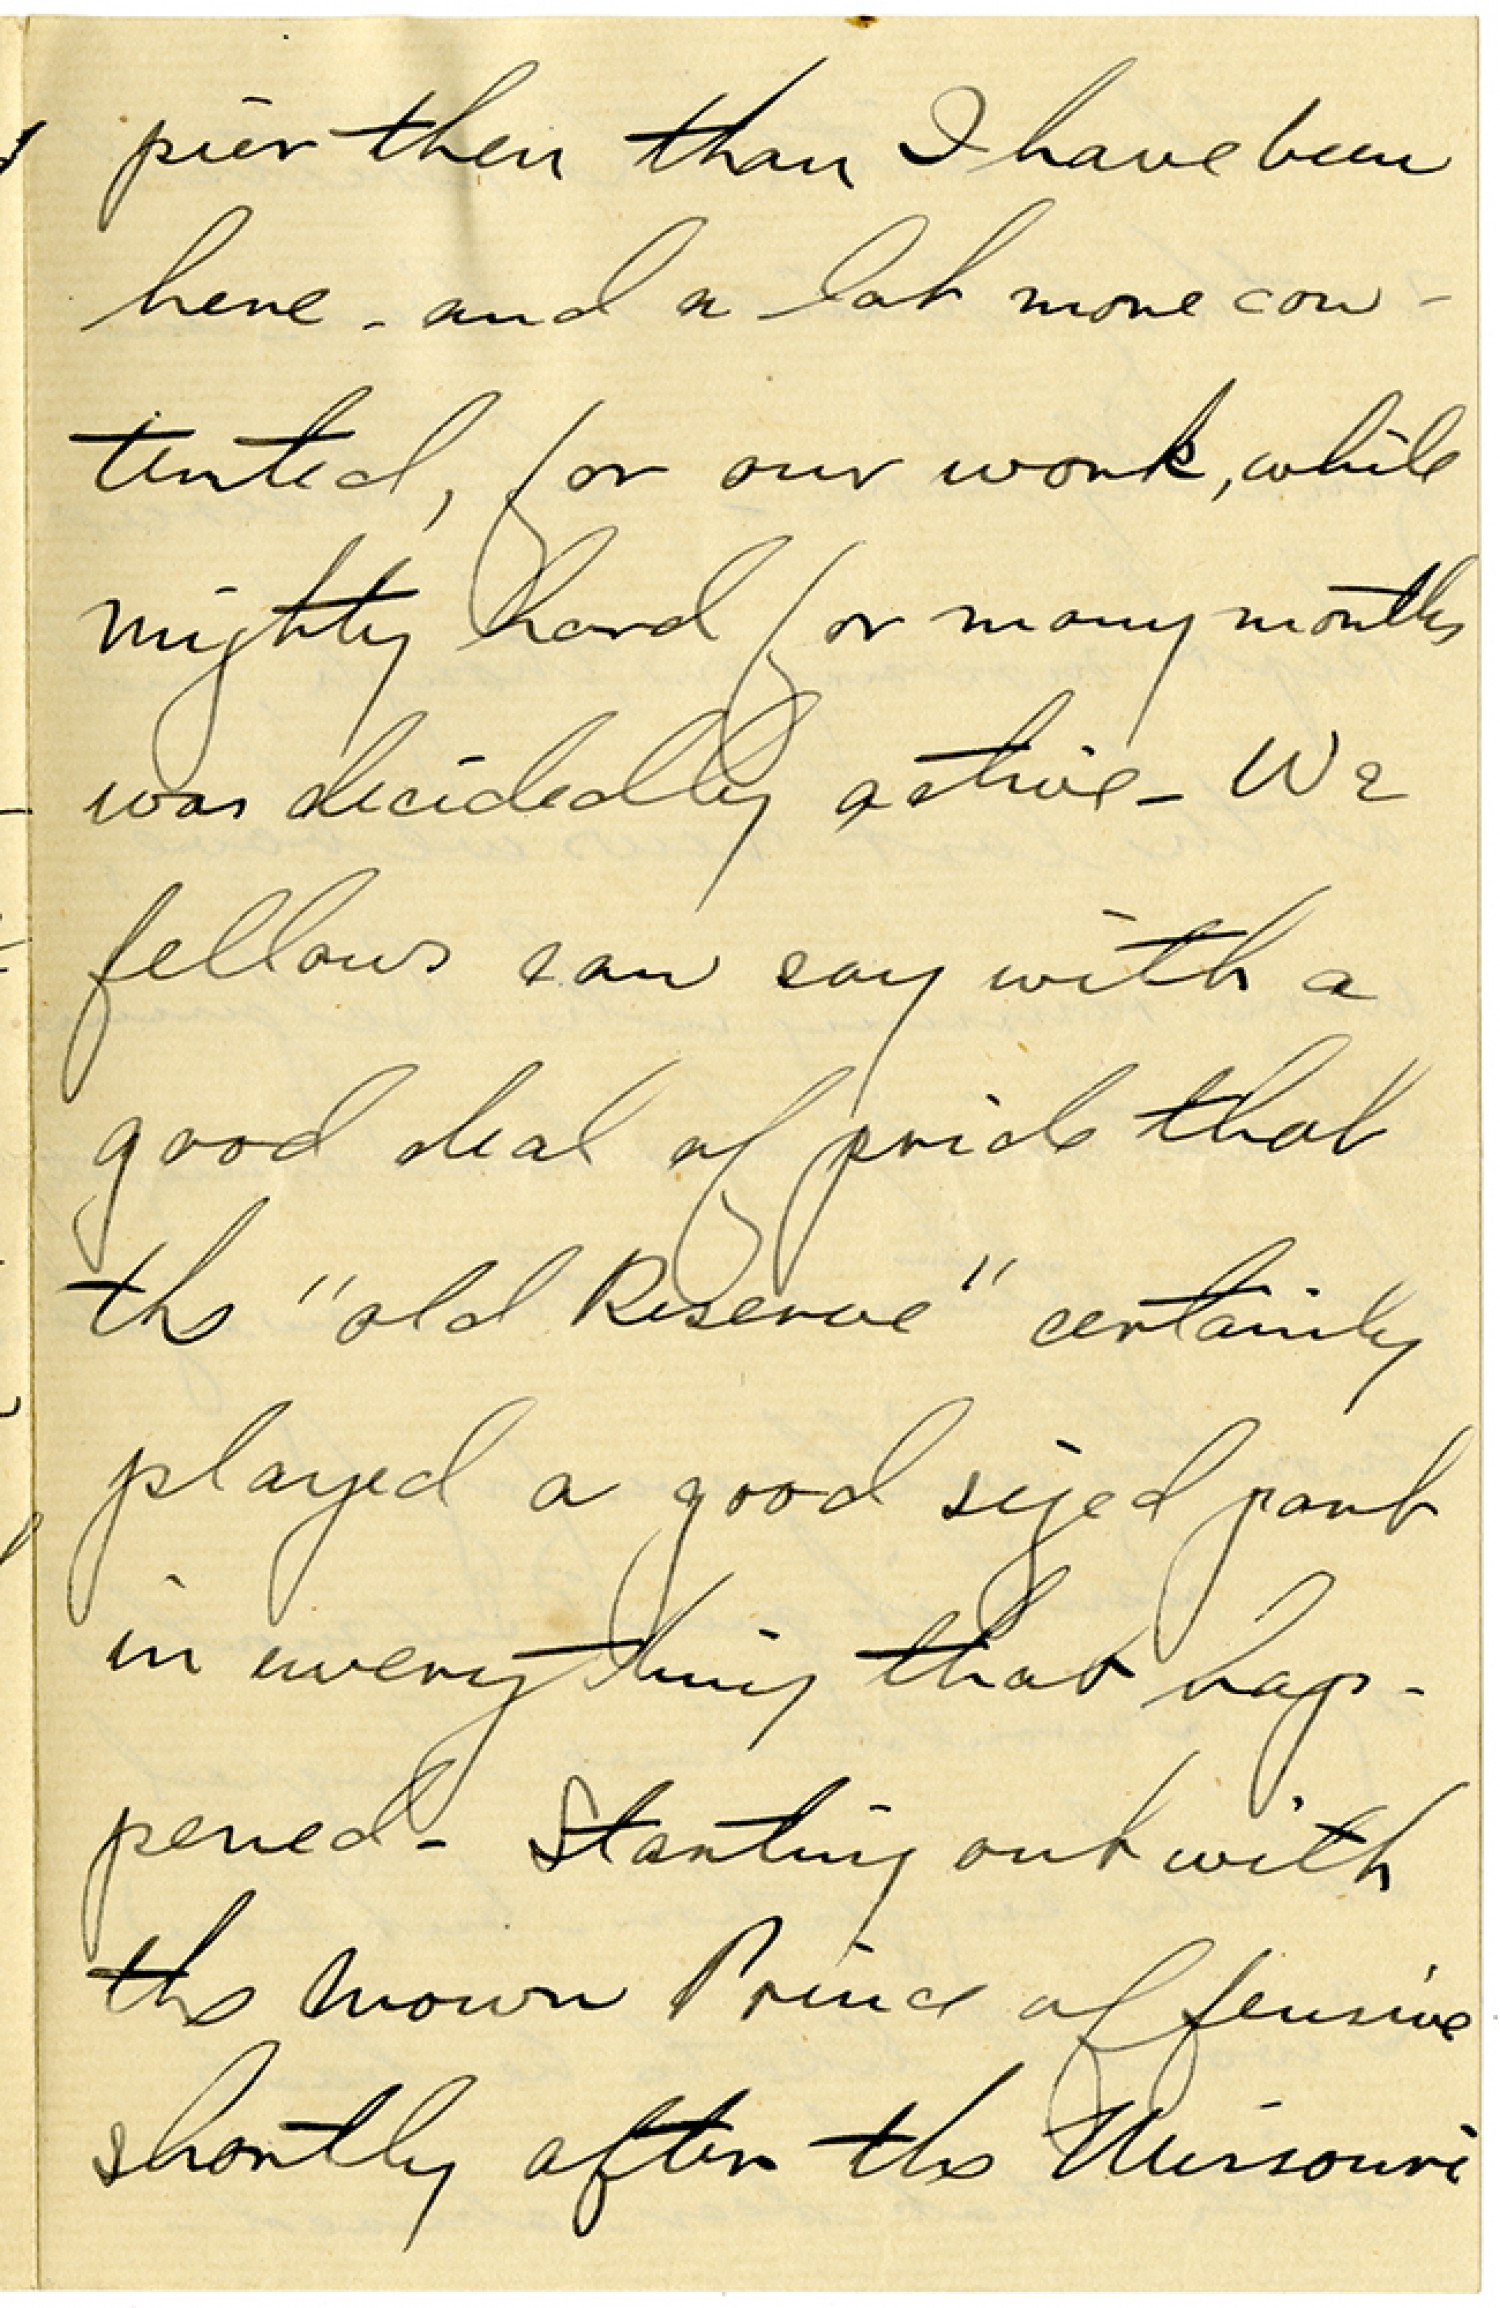 pier then than I have been
here - and a lot more con-
tented, for our work, while
mighty hard for many months
was decidedly active - We
fellows can say with a
good deal of pride that
the "old Reserve" certainly
played a good sized part
in everything that hap-
pened - Starting out with
the Mown Prince offensive
shortly after the Missouri